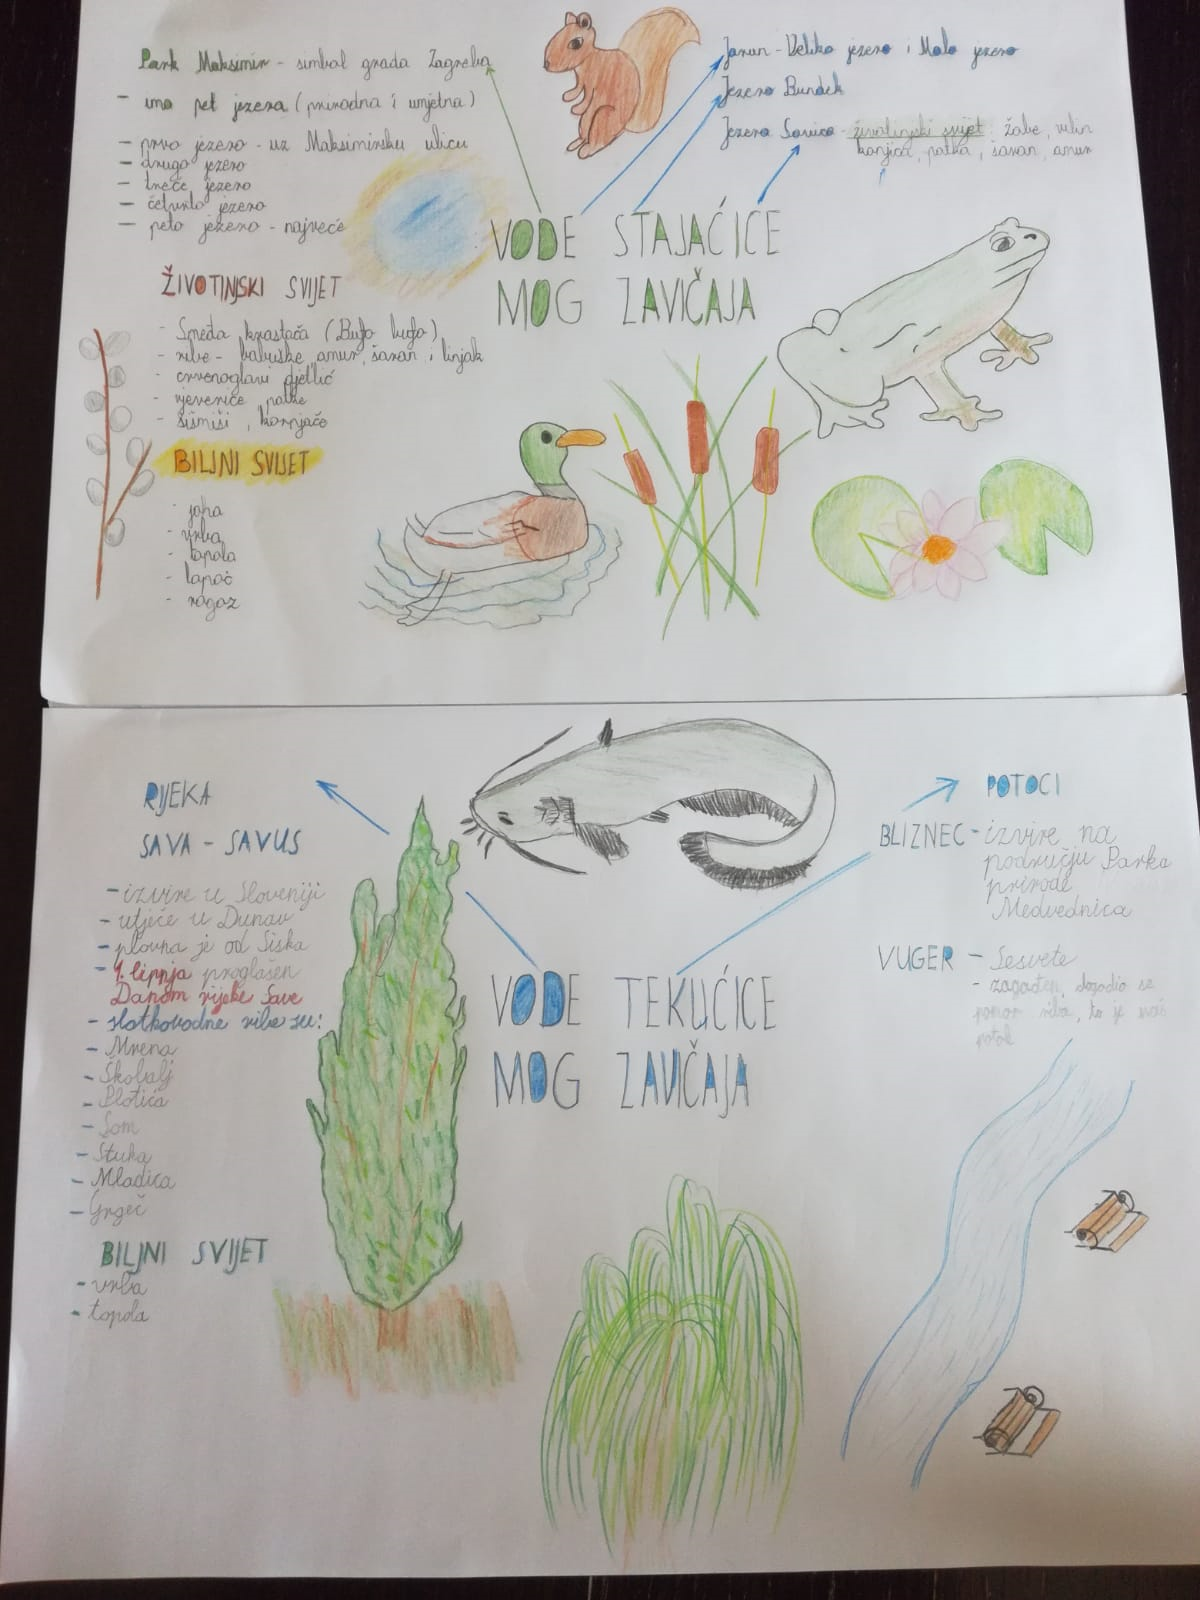 Park Maksimir - simbol grada Zagreba
- ima pet jezera (prirodna i umjetna)
- prvo jezero - uz Maksimirsku ulicu
- drugo jezero
- treće jezero
- četvrto jezero
- peto jezero - najveće
ŽIVOTINJSKI SVIJET
- Smeđa krastača (Bufo bufo)
- ribe - babuške, amur, šaran i linjak
- crvenoglavi djetlić
- vjeverice, patke
- šišmiši, kornjače
BILJNI SVIJET
- joha
- vrba
- topola
- lapoč
- rogoz
Jarun - Veliko jezero i Malo jezero
Jezero Bundek
Jezero Savica - životinjski svijet: žabe, vilin
konjica, patka, šaran, amur
VODE STAJAĆICE
MOG ZAVIČAJA
RIJEKA
SAVA - SAVUS
- izvire u Sloveniji
- utječe u Dunav
- plovna je od Siska
- 1. lipnja proglašen
Danom rijeke Save
- slatkovodne ribe su:
- Mrena
- Škobalj
- Plotica
- Som
- Štuka
- Mladica
- Grgeč
BILJNI SVIJET
- vrba
- topola
VODE TEKUĆICE
MOG ZAVIČAJA
POTOCI
BLIZNEC - izvire na
području Parka
prirode
Medvednica
VUGER - Sesvete
- zagađen, dogodio se
pomor riba, to je naš
potok